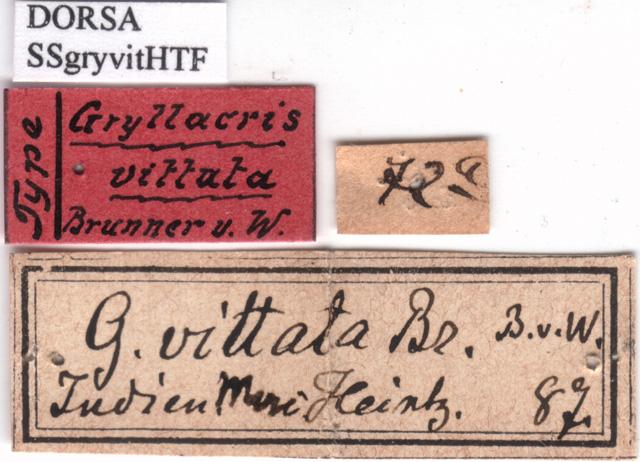 DORSA
SSgryvitHTF
Type
Gryllacris
vittata
Brunner v. W.
G. vittata Br. B.v.W.
Indien Heintz. 87.